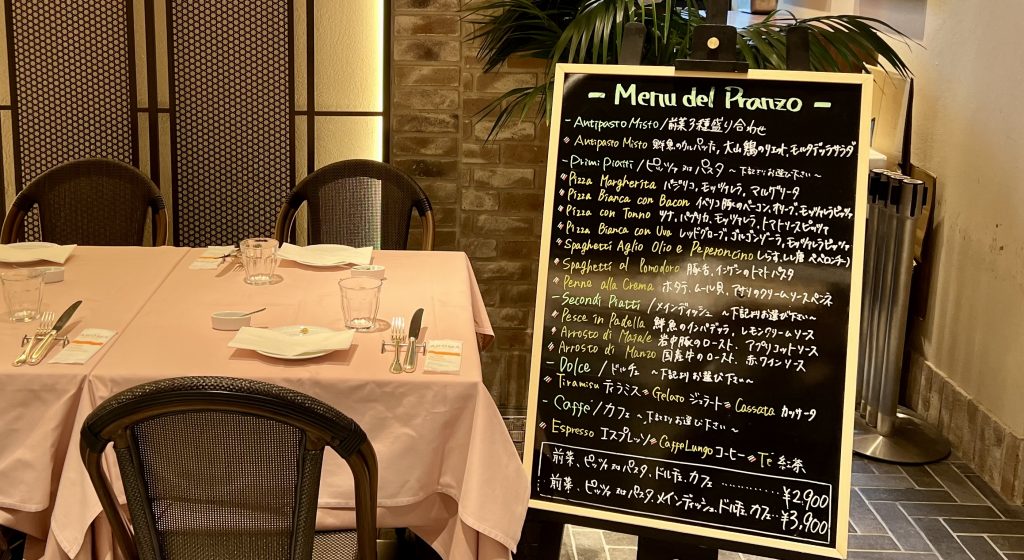 - Menu del Pranzo -
- Antipasto Misto/前菜3種盛り合わせ
Antipasto Misto 鮮魚のカルパッチョ, 大山鶏のリエット, モルタデッラサラダ
- Primi Piatti / ピッツァ or パスタ 〜下記よりお選び下さい〜
Pizza Margherita バジリコ, モッツァレラ, マルゲリータ
Pizza Bianca con Bacon イベリコ豚のベーコン, オリーブ, モッツァレラピッツァ
Pizza con Tonno ツナ, パプリカ, モッツァレラ, トマトソースピッツァ
Pizza Bianca con Uva レッドグローブ, ゴルゴンゾーラ, モッツァレラピッツァ
Spaghetti Aglio Olio e Peperoncino しらす, しし唐 ペペロンチーノ
Spaghetti al Pomodoro 豚舌, インゲンのトマトパスタ
Penne alla Crema ホタテ, ムール貝, アサリのクリームソースペンネ
- Secondi Piatti / メインディッシュ 〜下記よりお選び下さい〜
Pesce in Padella 鮮魚のインパデッラ, レモンクリームソース
Arrosto di Maiale 岩中豚のロースト, アプリコットソース
Arrosto di Manzo 国産牛のロースト, 赤ワインソース
- Dolce / ドルチェ 〜下記よりお選び下さい〜
Tiramisu ティラミス Gelato ジェラート Cassata カッサータ
- Caffe'/カフェ 〜下記よりお選び下さい〜
Espresso エスプレッソ Caffe Lungo コーヒー Te 紅茶
前菜, ピッツァ or パスタ, ドルチェ, カフェ ............ ¥2,900
前菜, ピッツァ or パスタ, メインディッシュ, ドルチェ, カフェ... ¥3,900